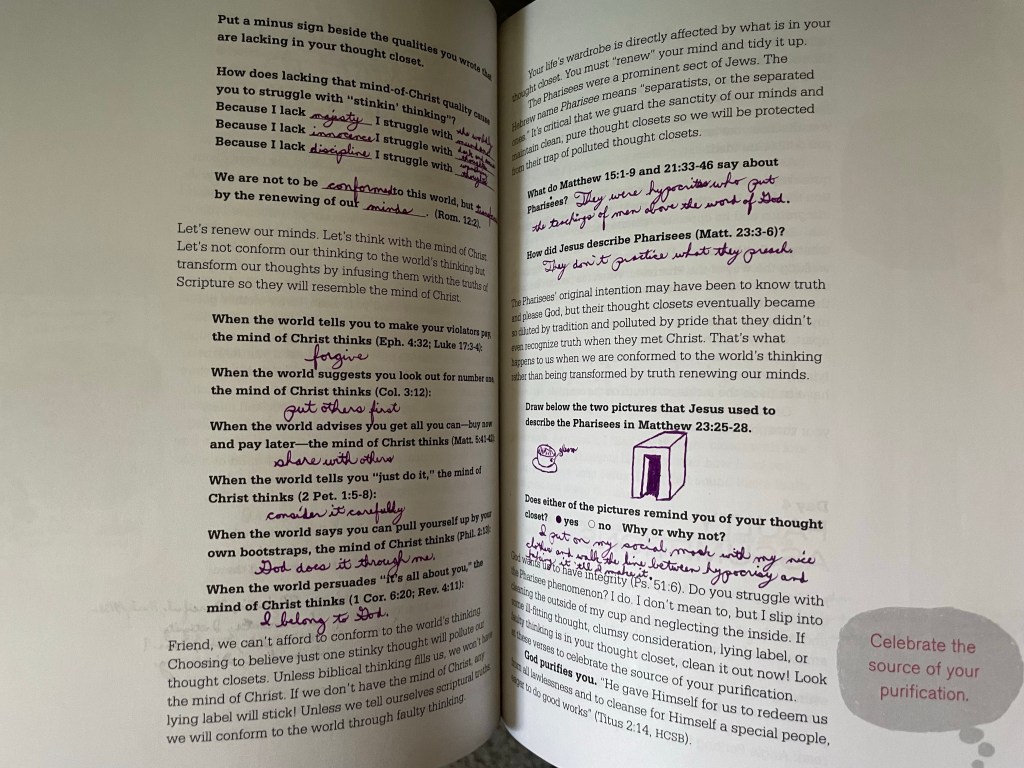 Put a minus sign beside the qualities you wrote that
are lacking in your thought closet.
How does lacking that mind-of-Christ quality cause
you to struggle with "stinkin' thinking"?
Because I lack majesty I struggle with
Because I lack innocence I struggle with
Because I lack discipline I struggle with
We are not to be conformed to this world, but
by the renewing of our minds. (Rom. 12:2).
Let's renew our minds. Let's think with the mind of Christ.
Let's not conform our thinking to the world's thinking but
transform our thoughts by infusing them with the truths of
Scripture so they will resemble the mind of Christ.
When the world tells you to make your violators pay,
the mind of Christ thinks (Eph. 4:32; Luke 17:3-4):
forgive
When the world suggests you look out for number one,
the mind of Christ thinks (Col. 3:12):
put others first
When the world advises you get all you can—buy now
and pay later—the mind of Christ thinks (Matt. 5:41-42):
share with others
When the world tells you "just do it," the mind of
Christ thinks (2 Pet. 1:5-8):
consider it carefully
When the world says you can pull yourself up by your
own bootstraps, the mind of Christ thinks (Phil. 2:13):
God does it through me.
When the world persuades "it's all about you," the
mind of Christ thinks (1 Cor. 6:20; Rev. 4:11):
I belong to God.
Friend, we can't afford to conform to the world's thinking.
Choosing to believe just one stinky thought will pollute our
thought closets. Unless biblical thinking fills us, we won't have
the mind of Christ. If we don't have the mind of Christ, any
lying label will stick! Unless we tell ourselves scriptural truths,
we will conform to the world through faulty thinking.
Your life's wardrobe is directly affected by what is in your
thought closet. You must "renew" your mind and tidy it up.
The Pharisees were a prominent sect of Jews. The
Hebrew name Pharisee means "separatists, or the separated
ones." It's critical that we guard the sanctity of our minds and
maintain clean, pure thought closets so we will be protected
from their trap of polluted thought closets.
What do Matthew 15:1-9 and 21:33-46 say about
Pharisees? They were hypocrites who put
the teachings of men above the word of God.
How did Jesus describe Pharisees (Matt. 23:3-6)?
They don't practice what they preach.
The Pharisees' original intention may have been to know truth
and please God, but their thought closets eventually became
so diluted by tradition and polluted by pride that they didn't
even recognize truth when they met Christ. That's what
happens to us when we are conformed to the world's thinking
rather than being transformed by truth renewing our minds.
Draw below the two pictures that Jesus used to
describe the Pharisees in Matthew 23:25-28.
Does either of the pictures remind you of your thought
closet? yes no Why or why not?
I put on my social mask with my nice
clothes and walk the line between hypocrisy and
faking it 'till I make it.
God wants us to have integrity (Ps. 51:6). Do you struggle with
the Pharisee phenomenon? I do. I don't mean to, but I slip into
cleaning the outside of my cup and neglecting the inside. If
some ill-fitting thought, clumsy consideration, lying label, or
faulty thinking is in your thought closet, clean it out now! Look
at these verses to celebrate the source of your purification.
God purifies you. "He gave Himself for us to redeem us
from all lawlessness and to cleanse for Himself a special people,
eager to do good works" (Titus 2:14, HCSB).
Celebrate the
source of your
purification.